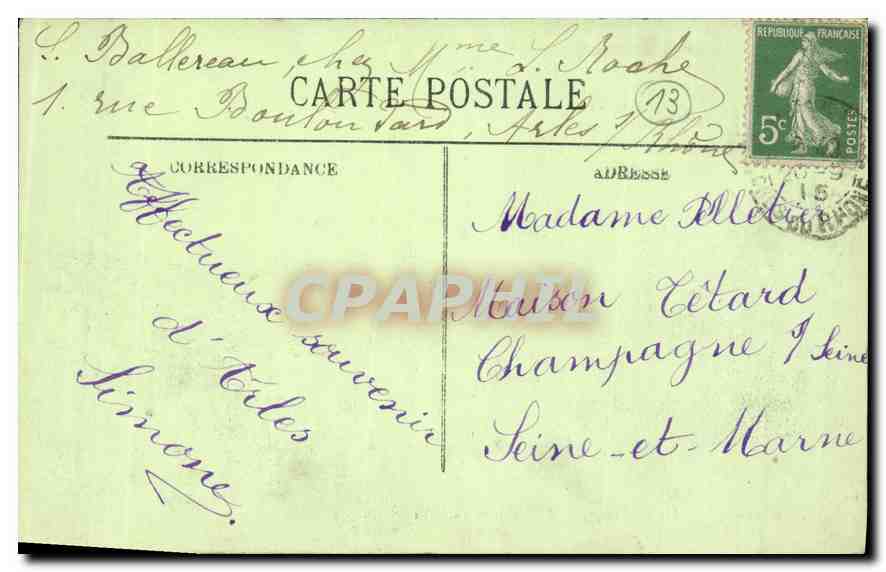 S. Ballereau, chez Mme L. Roche
1. rue Boulouvard, Arles s/ Rhône
CARTE POSTALE
13
REPUBLIQUE FRANÇAISE
5c
POSTES
15
DU RHONE
CORRESPONDANCE
Affectueux souvenir
d'Arles
Simone.
ADRESSE
Madame Pelletier
Maison Tétard
Champagne s/ Seine
Seine-et-Marne
CPAPHEL